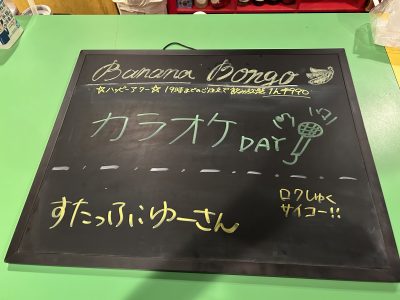 Banana Bongo
☆ハッピーアワー☆ 19時までのご注文で飲み放題 1人¥990
カラオケDAY
すたっふにゆーさん
ロクしゅく
サイコー!!